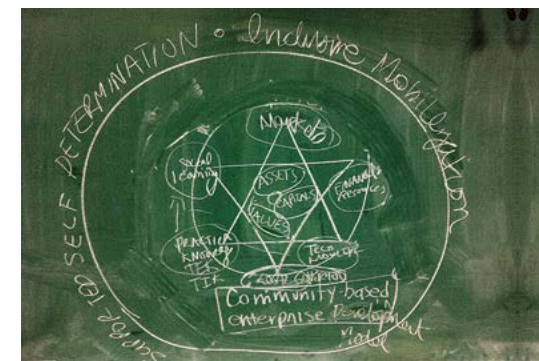 SUPPORTED SELF DETERMINATION • Inclusive Mobilization
Social
Learning
ASSETS
CAPITALS
VALUES
FINANCIAL
resources
PRACTICE
TEK
TECH
Community-based
enterprise Development
Model